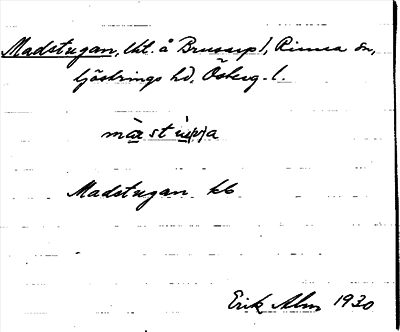 Madstugan, lht. å Brussp!, Rinna sn,
Göstrings hd, Österg. l.
màrstùg(g)a
Madstugan kb
Erik Alm 1930